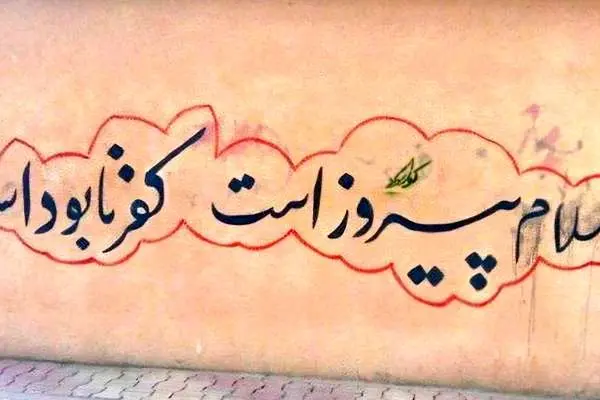 سلام پیروز است کفر نابود اس